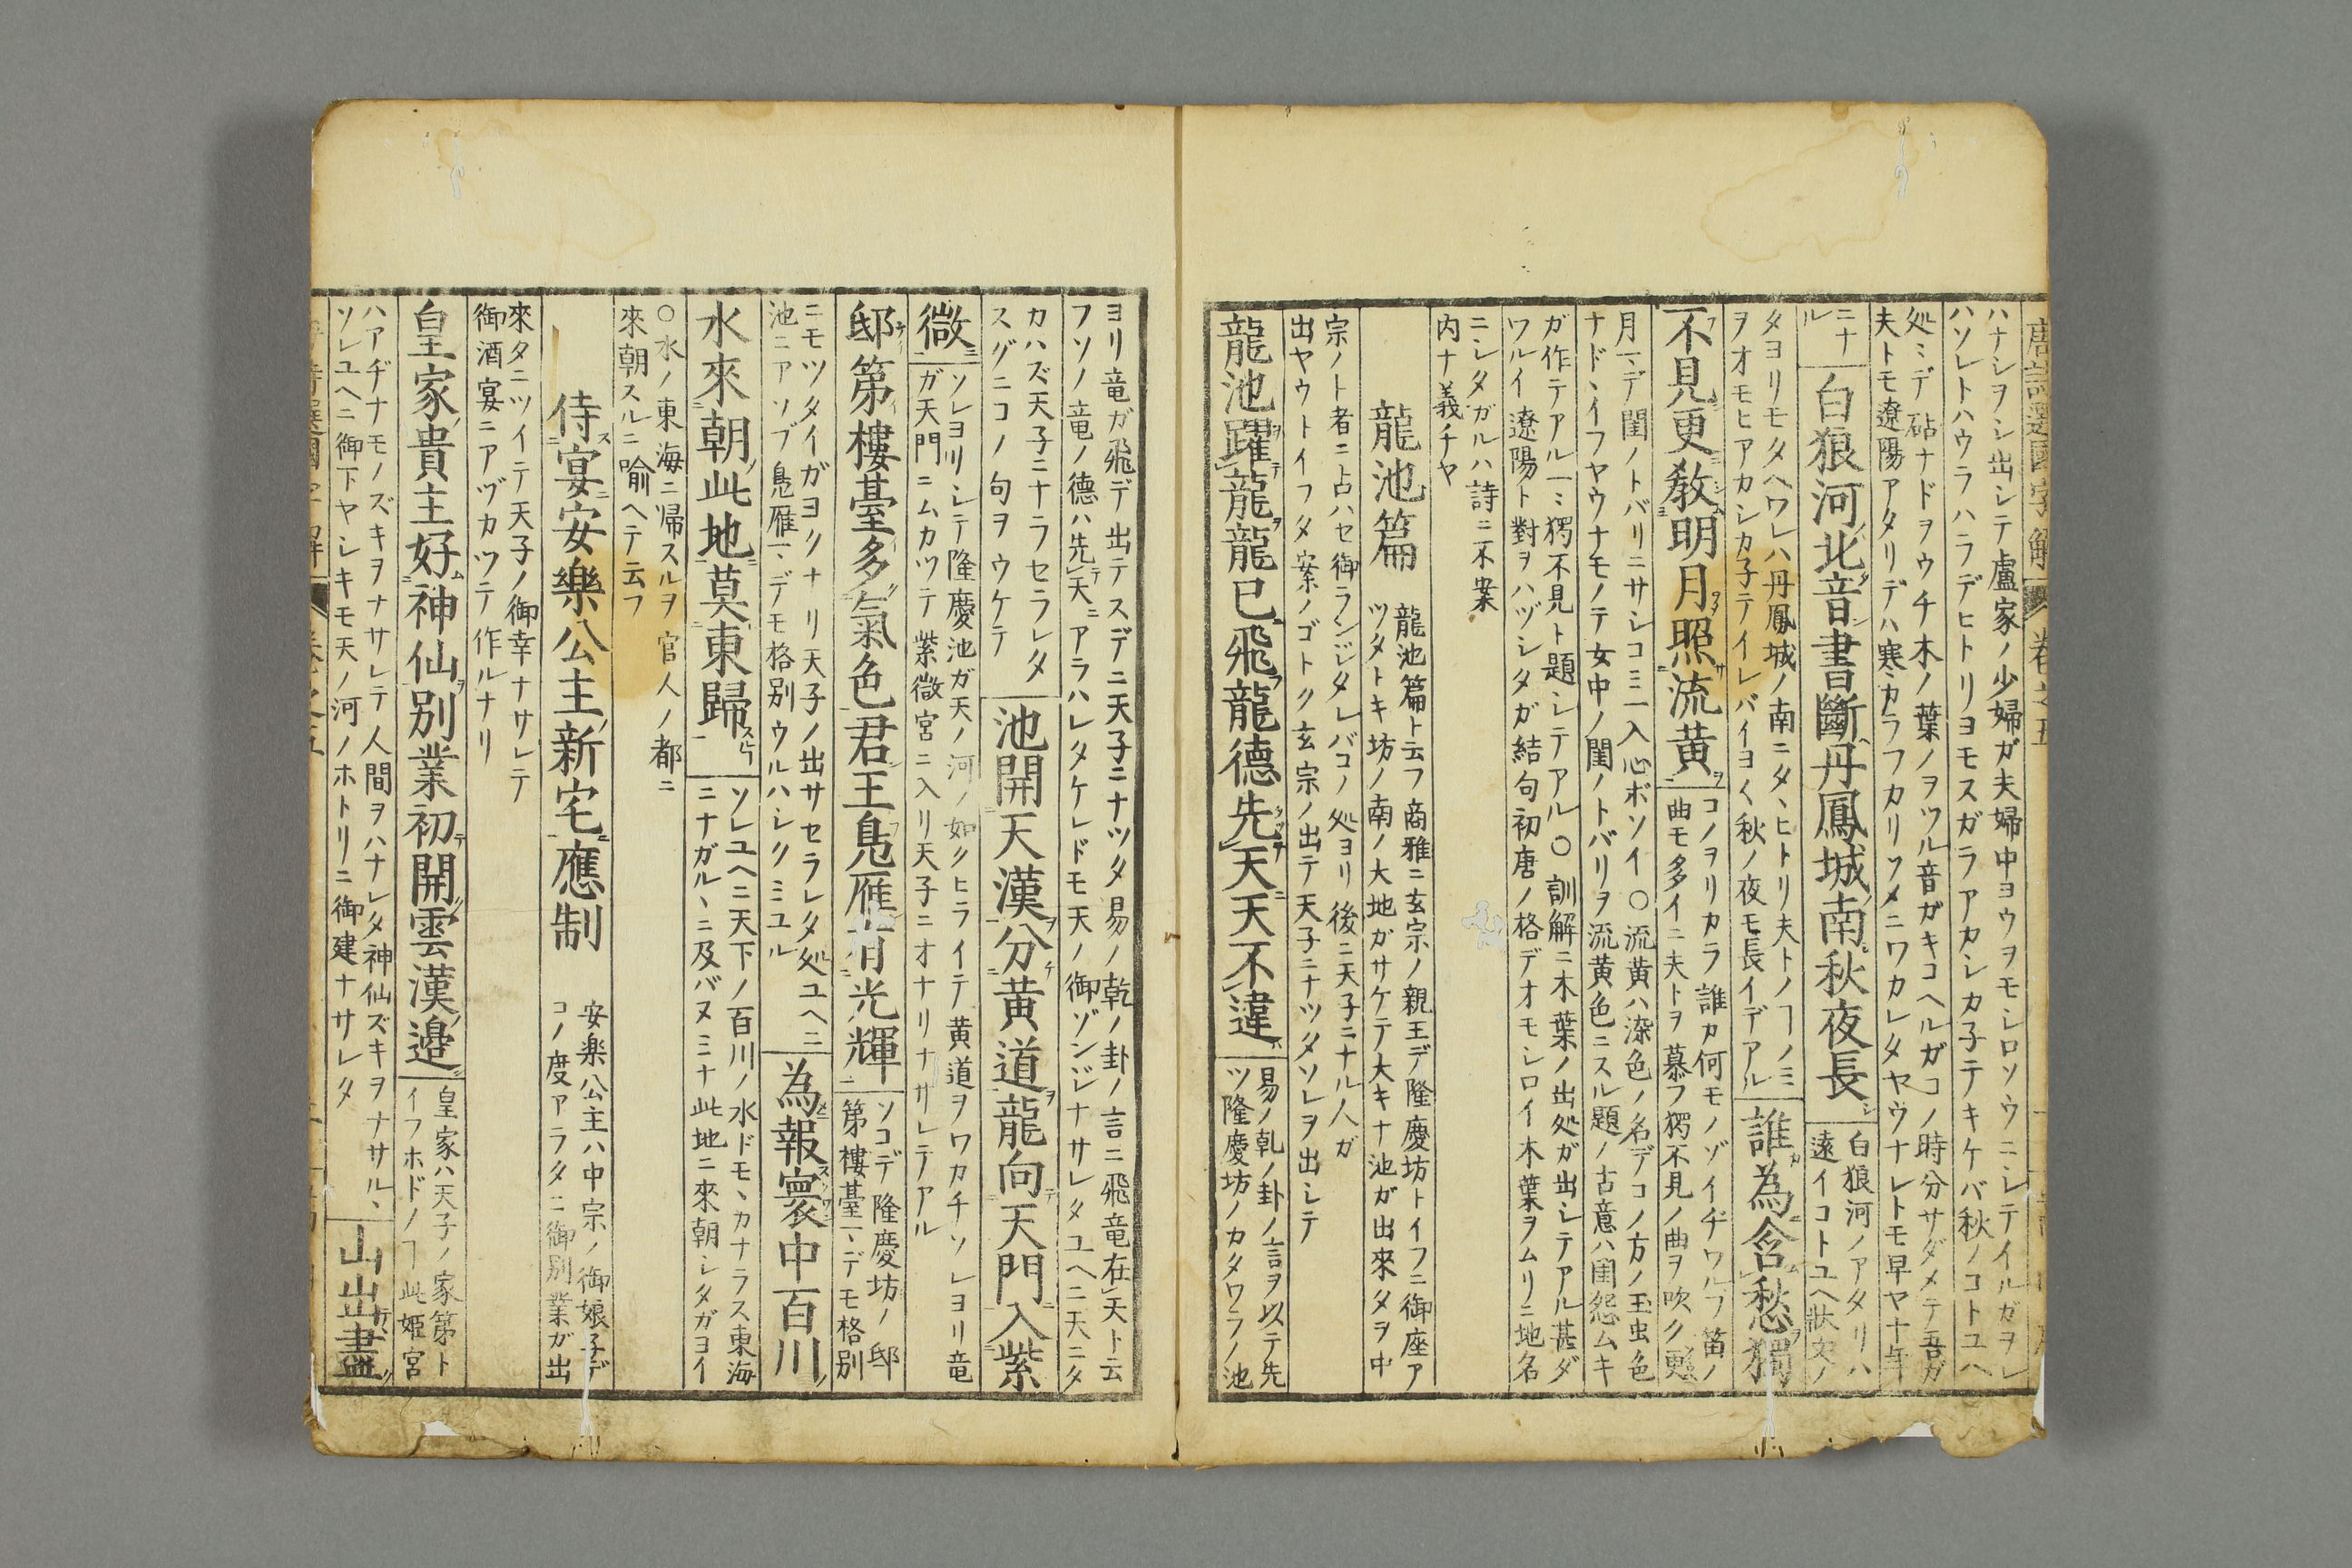 唐詩選國字解 卷之五
ハナシヲシ出シテ盧家ノ少婦ガ夫婦中ヨウヲモシロソウニシテイルガヲレ
ハソレトハウラハラデヒトリヨモスガラアカシカ子テキケバ秋ノコトユヘ
処ミデ砧ナドヲウチ木ノ葉ノヲツル音ガキコヘルガコノ時分サダメテ吾ガ
夫トモ遼陽アタリデハ寒カラフカリソメニワカレタヤウナレトモ早ヤ十年
ニナ
ル
白狼河北音書斷丹鳳城南秋夜長
白狼河ノアタリハ
遠イコトユヘ狀文ノ
タヨリモタヘワレハ丹鳳城ノ南ニタヽヒトリ夫トノヿノミ
ヲオモヒアカシカ子テイレバイヨ〱秋ノ夜モ長イデアル
誰為含愁獨
不見更敎明月照流黄
コノヲリカラ誰カ何モノゾイヂワルフ笛ノ
曲モ多イニ夫トヲ慕フ獨不見ノ曲ヲ吹ク
月一ヽデ閨ノトバリニサシコミ一入心ボソイ○流黄ハ染色ノ名デコノ方ノ玉虫色
ナドヽイフヤウナモノテ女中ノ閨ノトバリヲ流黄色ニスル題ノ古意ハ閨怨ムキ
ガ作テアル一ミ獨不見ト題シテアル○訓解ニ木葉ノ出処ガ出シテアル甚ダ
ワルイ遼陽ト對ヲハヅシタガ結句初唐ノ格デオモシロイ木葉ヲムリニ地名
ニシタガルハ詩ニ不案
内ナ義チヤ
龍池篇
龍池篇ト云フ商雅ニ玄宗ノ親王デ隆慶坊トイフニ御座ア
ツタトキ坊ノ南ノ大地ガサケテ大キナ池ガ出來タヲ中
宗ノト者ニ占ハセ御ランジタレバコノ処ヨリ後ニ天子ニナル人ガ
出ヤウトイフタ案ノゴトク玄宗ノ出テ天子ニナツタソレヲ出シテ
龍池躍龍龍已飛龍德先天天不違
易ノ乾ノ卦ノ言ヲ以テ先
ツ隆慶坊ノカタワラノ池
ヨリ竜ガ飛デ出テスデニ天子ニナツタ易ノ乾ノ卦ノ言ニ飛竜在天ト云
フソノ竜ノ德ハ先天ニアラハレタケレドモ天ノ御ゾンジナサレタユヘニ天ニタ
カハズ天子ニナラセラレタ
スグニコノ句ヲウケテ
池開天漢分黄道龍向天門入紫
微
ソレヨリシテ隆慶池ガ天ノ河ノ如クヒライテ黄道ヲワカチソレヨリ竜
ガ天門ニムカツテ紫微宮ニ入リ天子ニオナリナサレテアル
邸第樓臺多氣色君王鳬雁有光輝
ソコデ隆慶坊ノ邸
第樓臺一ヽデモ格別
ニモツタイガヨクナリ天子ノ出サセラレタ処ユヘニ
池ニアソブ鳬雁一ヽデモ格別ウルハシクミユル
為報寰中百川
水來朝此地莫東歸
ソレユヘニ天下ノ百川ノ水ドモヽカナラス東海
ニナガルヽニ及バヌミナ此地ニ來朝シタガヨイ
○水ノ東海ニ帰スルヲ官人ノ都ニ
來朝スルニ喩ヘテ云フ
侍宴安樂公主新宅應制
安楽公主ハ中宗ノ御娘子デ
コノ度アラタニ御別業ガ出
來タニツイテ天子ノ御幸ナサレテ
御酒宴ニアヅカツテ作ルナリ
皇家貴主好神仙別業初開雲漢邊
皇家ハ天子ノ家第ト
イフホドノヿ此姫宮
ハアヂナモノズキヲナサレテ人間ヲハナレタ神仙ズキヲナサルヽ
ソレユヘニ御下ヤシキモ天ノ河ノホトリニ御建ナサレタ
山出盡